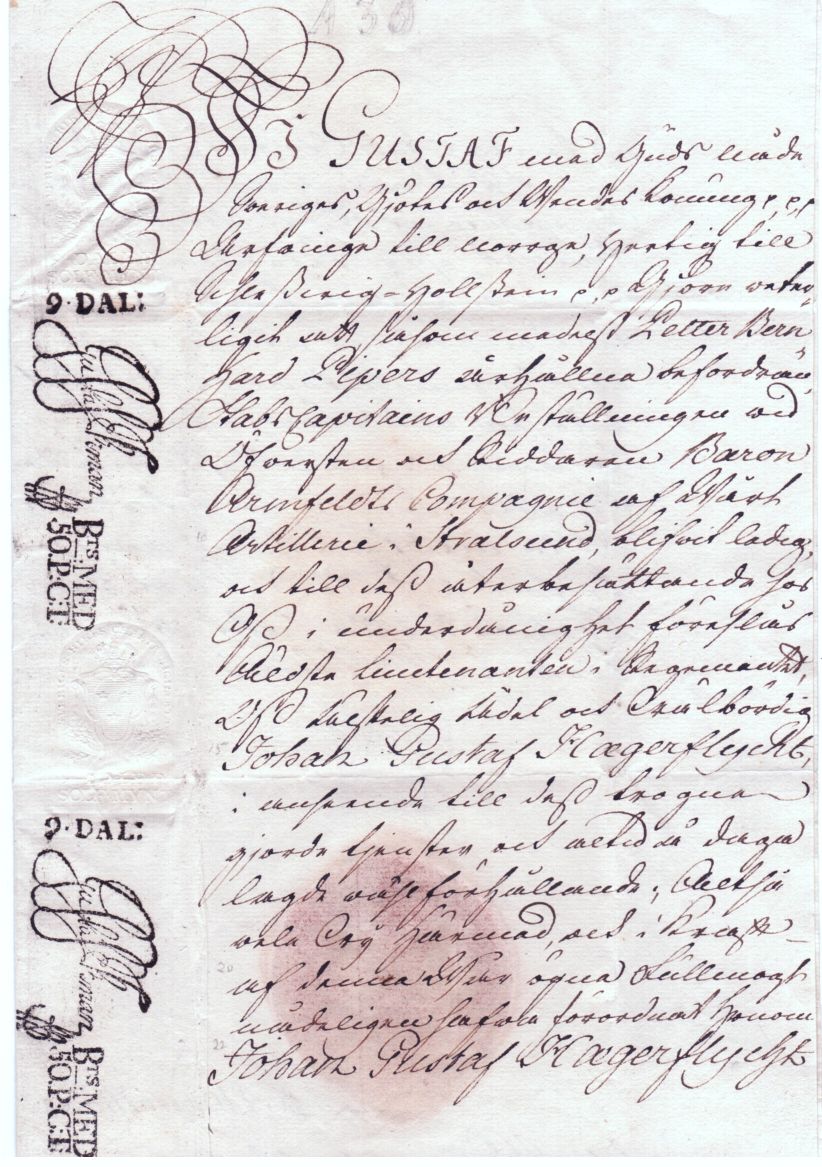 A 30
Wi GUSTAF med Guds nåde
Sveriges, Götes och Wendes Konung p, p, p
Arfwinge till Norrge, Hertig till
Schleßwig-Hollstein p, p Giöre weter,
ligit att, såsom medelst Petter Bern
hard Pipers erhållna befordran,
StabsCapitains Beställningen wid
Öfwersten och Riddaren Baron
Armfeldts Compagnie af Wårt
Artillerie i Stralsund, blifwit ledig,
och till deß återbesättande hos
Oß i underdånighet föreslås
Äldste Lieutenanten i Regementet,
Oß Elskelig Ädel och Wälbördig
Johan Gustaf Hægerflycht,
i anseende till deß trogne
gjorde tjenster och altid å daga
lagde wälförhållande; Altså
wele Wij härmed, och i Kraft
af denna Wår öpna Fullmagt
nådeligen hafwa förordnat honom
Johan Gustaf Hægerflycht
15
20
22
9·DAL:
BTS. MED
50.P:C:T:
9·DAL:
BTS. MED
50.P:C:T: